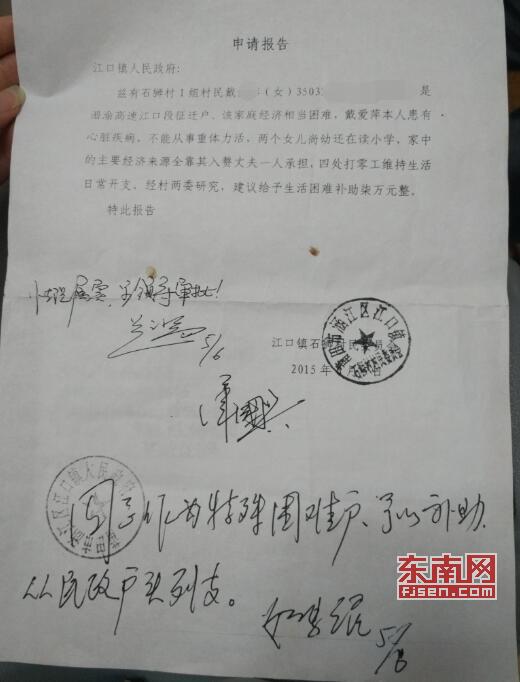 申请报告
江口镇人民政府：
兹有石狮村1组村民戴 ：（女）3503 是
湄渝高速江口段征迁户、该家庭经济相当困难，戴爱萍本人患有
心脏疾病，不能从事重体力活，两个女儿尚幼还在读小学，家中
的主要经济来源全靠其入赘丈夫一人承担，四处打零工维持生活
日常开支。经村两委研究，建议给予生活困难补助柒万元整。
特此报告
情况属实，呈镇领导审批！
5/6
江口镇石狮村民委员
2015年 月 日
莆田市涵江区江口镇
江口镇人民政府
同意作为特殊困难户、予以补助
从民政户头列支。
5/8
东南网
FJSEN.COM